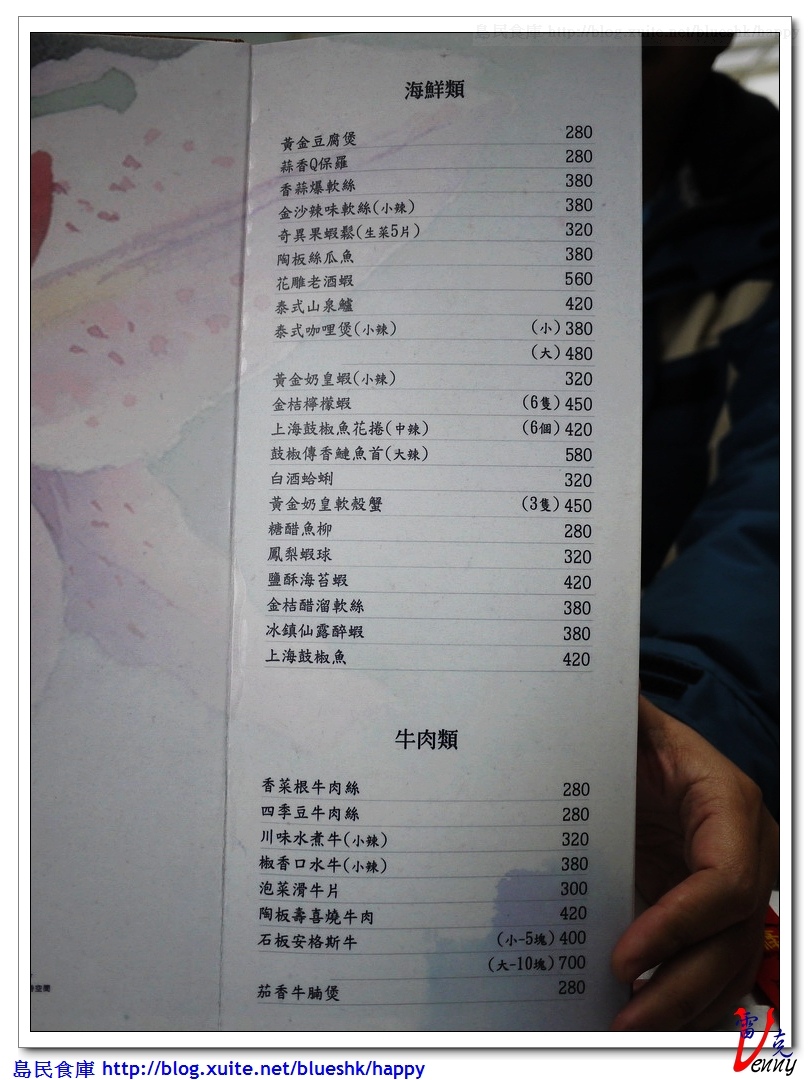 島民食庫 http://blog.xuite.net/blueshk/happy
海鮮類
黃金豆腐煲 280
蒜香Q保羅 280
香蒜爆軟絲 380
金沙辣味軟絲(小辣) 380
奇異果蝦鬆(生菜5片) 320
陶板絲瓜魚 380
花雕老酒蝦 560
泰式山泉鱸 420
泰式咖哩煲(小辣) (小)380
(大)480
黃金奶皇蝦(小辣) 320
金桔檸檬蝦 (6隻)450
上海鼓椒魚花捲(中辣) (6個)420
鼓椒傳香鰱魚首(大辣) 580
白酒蛤蜊 320
黃金奶皇軟殼蟹 (3隻)450
糖醋魚柳 280
鳳梨蝦球 320
鹽酥海苔蝦 420
金桔醋溜軟絲 380
冰鎮仙露醉蝦 380
上海鼓椒魚 420
牛肉類
香菜根牛肉絲 280
四季豆牛肉絲 280
川味水煮牛(小辣) 320
椒香口水牛(小辣) 380
泡菜滑牛片 300
陶板壽喜燒牛肉 420
石板安格斯牛 (小-5塊)400
(大-10塊)700
茄香牛腩煲 280
雷克
Venny
島民食庫 http://blog.xuite.net/blueshk/happy